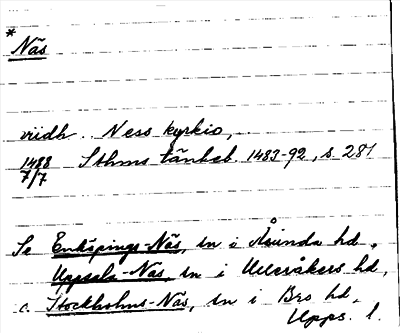 *
Näs
viidh .. Ness kyrkio,
1488 Sthms tänkeb. 1483-92, s. 281
7/7
Se Enköpings-Näs, sn i Åsunda hd,
Uppsala-Näs, sn i Ulleråkers hd,
o. Stockholms-Näs, sn i Bro hd,
Upps. l.